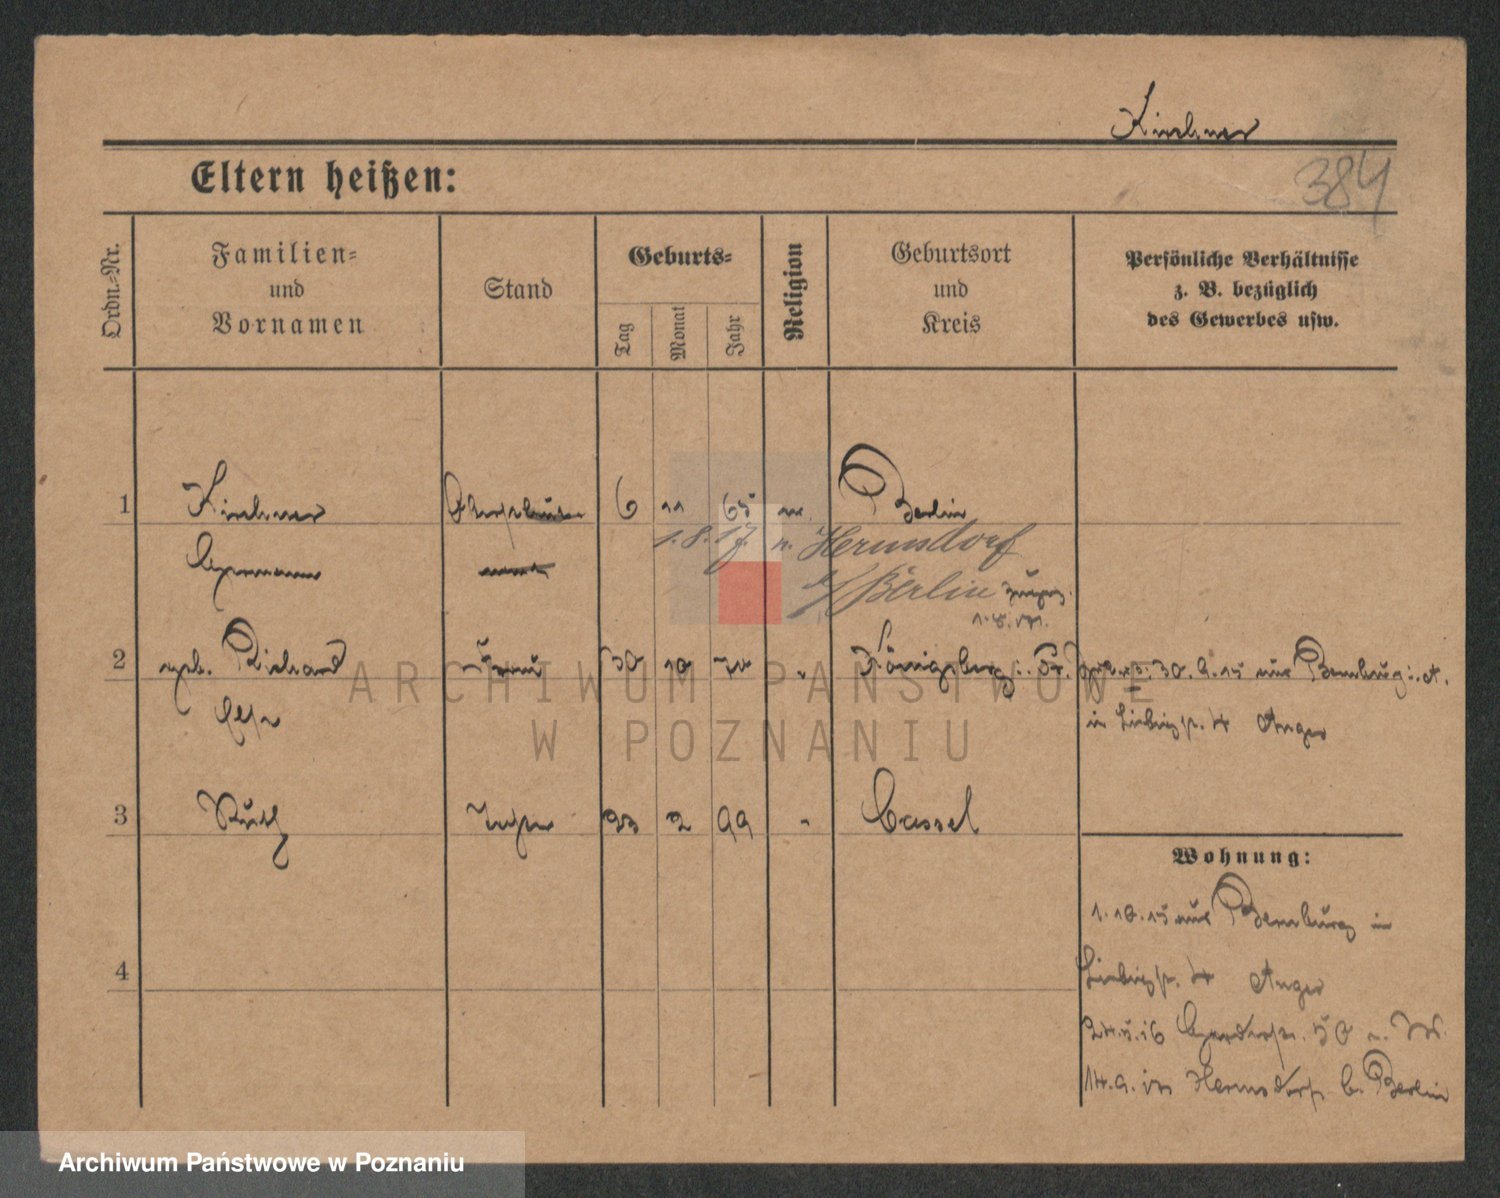 Kirchner
384
Eltern heißen:
Ordn.-Nr.
Familien-
und
Vornamen
Stand
Geburts-
Tag
Monat
Jahr
Religion
Geburtsort
und
Kreis
Persönliche Verhältnisse
z. B. bezüglich
des Gewerbes usw.
1 Kirchner 6 11 65 Berlin
1.8.17 n. Hermsdorf
b/Berlin
2 geb. Richard Frau 30 10 70 Königsberg i. Pr. 30.9.15 aus Bernburg i. A.
Else in 4 Anger
3 Ruth 23 2 99 " Cassel
4
Wohnung:
1.10.15 aus Bernburg in
4 Anger
24.5.16 50 n. W.
14.9.17 Hermsdorf b. Berlin
ARCHIWUM PAŃSTWOWE
W POZNANIU
Archiwum Państwowe w Poznaniu